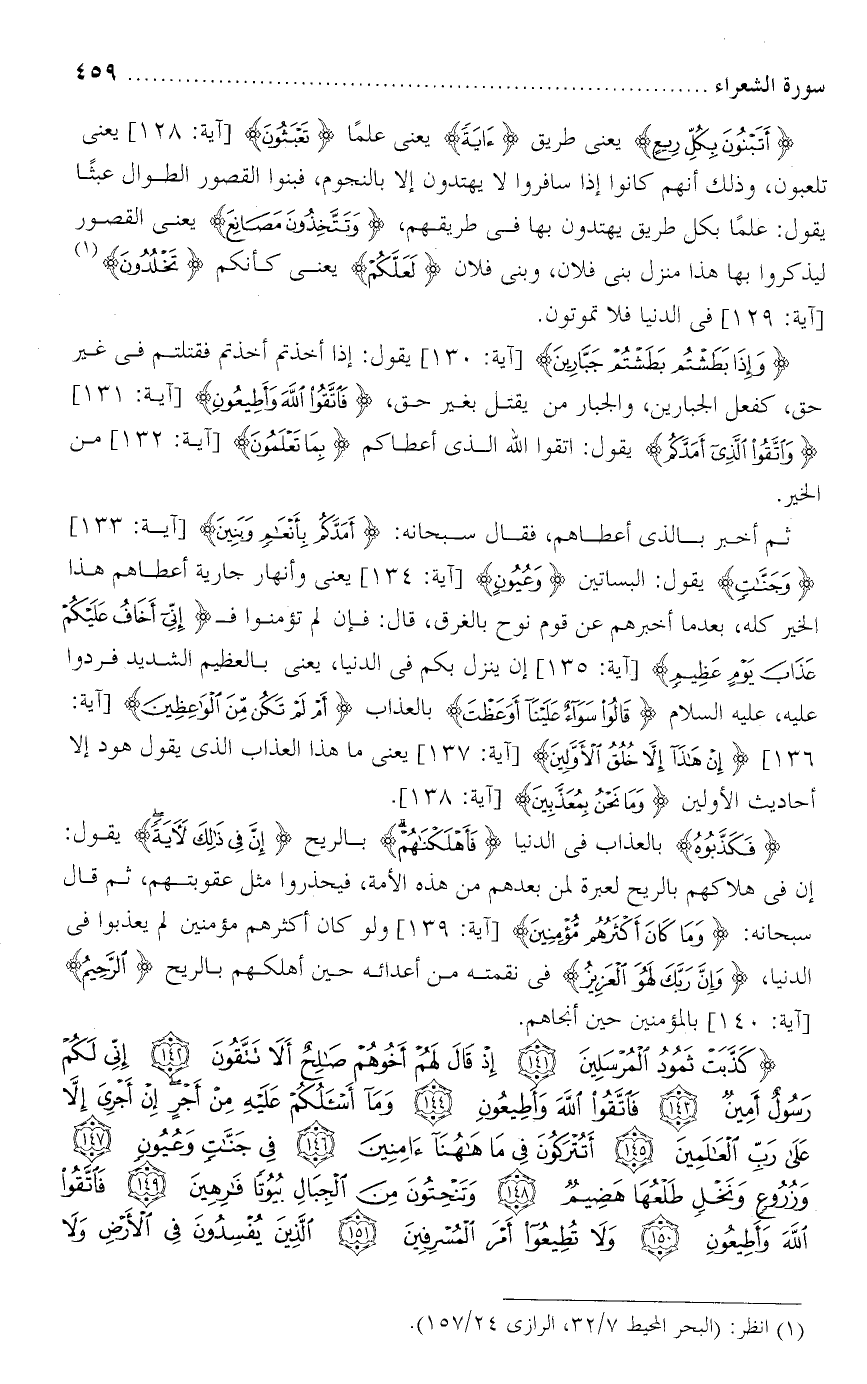 سورة الشعراء ........................................................................ ٤٥٩
﴿ أَتَبْنُونَ بِكُلِّ رِيعٍ﴾ يعنى طريق ﴿ ءَايَةً﴾ يعنى علمًا ﴿ تَعْبَثُونَ﴾ [آية: ١٢٨] يعنى
تلعبون، وذلك أنهم كانوا إذا سافروا لا يهتدون إلا بالنجوم، فبنوا القصور الطوال عبثًا
يقول: علمًا بكل طريق يهتدون بها فى طريقهم، ﴿ وَتَتَّخِذُونَ مَصَانِعَ﴾ يعنى القصور
ليذكروا بها هذا منزل بنى فلان، وبنى فلان ﴿ لَعَلَّكُمْ﴾ يعنى كأنكم ﴿ تَخْلُدُونَ﴾(١)
[آية: ١٢٩] فى الدنيا فلا تموتون.
﴿ وَإِذَا بَطَشْتُم بَطَشْتُمْ جَبَّارِينَ﴾ [آية: ١٣٠] يقول: إذا أخذتم أخذتم فقتلتم فى غير
حق، كفعل الجبارين، والجبار من يقتل بغير حق، ﴿ فَاتَّقُوا اللَّهَ وَأَطِيعُونِ﴾ [آية: ١٣١]
﴿ وَاتَّقُوا الَّذِىٓ أَمَدَّكُم﴾ يقول: اتقوا الله الذى أعطاكم ﴿ بِمَا تَعْلَمُونَ﴾ [آية: ١٣٢] من
الخير.
ثم أخبر بالذى أعطاهم، فقال سبحانه: ﴿ أَمَدَّكُم بِأَنْعَامٍ وَبَنِينَ﴾ [آية: ١٣٣]
﴿ وَجَنَّاتٍ﴾ يقول: البساتين ﴿ وَعُيُونٍ﴾ [آية: ١٣٤] يعنى وأنهار جارية أعطاهم هذا
الخير كله، بعدما أخبرهم عن قوم نوح بالغرق، قال: فإن لم تؤمنوا فـ ﴿ إِنِّىٓ أَخَافُ عَلَيْكُمْ
عَذَابَ يَوْمٍ عَظِيمٍ﴾ [آية: ١٣٥] إن ينزل بكم فى الدنيا، يعنى بالعظيم الشديد فردوا
عليه، عليه السلام ﴿ قَالُوا سَوَآءٌ عَلَيْنَآ أَوَعَظْتَ﴾ بالعذاب ﴿ أَمْ لَمْ تَكُن مِّنَ الْوَاعِظِينَ﴾ [آية:
١٣٦] ﴿ إِنْ هَٰذَآ إِلَّا خُلُقُ الْأَوَّلِينَ﴾ [آية: ١٣٧] يعنى ما هذا العذاب الذى يقول هود إلا
أحاديث الأولين ﴿ وَمَا نَحْنُ بِمُعَذَّبِينَ﴾ [آية: ١٣٨].
﴿ فَكَذَّبُوهُ﴾ بالعذاب فى الدنيا ﴿ فَأَهْلَكْنَاهُمْ﴾ بالريح ﴿ إِنَّ فِى ذَٰلِكَ لَآيَةً﴾ يقول:
إن فى هلاكهم بالريح لعبرة لمن بعدهم من هذه الأمة، فيحذروا مثل عقوبتهم، ثم قال
سبحانه: ﴿ وَمَا كَانَ أَكْثَرُهُم مُّؤْمِنِينَ﴾ [آية: ١٣٩] ولو كان أكثرهم مؤمنين لم يعذبوا فى
الدنيا، ﴿ وَإِنَّ رَبَّكَ لَهُوَ الْعَزِيزُ﴾ فى نقمته من أعدائه حين أهلكهم بالريح ﴿ الرَّحِيمُ﴾
[آية: ١٤٠] بالمؤمنين حين أنجاهم.
﴿ كَذَّبَتْ ثَمُودُ الْمُرْسَلِينَ ١٤١ إِذْ قَالَ لَهُمْ أَخُوهُمْ صَالِحٌ أَلَا تَتَّقُونَ ١٤٢ إِنِّى لَكُمْ
رَسُولٌ أَمِينٌ ١٤٣ فَاتَّقُوا اللَّهَ وَأَطِيعُونِ ١٤٤ وَمَآ أَسْـَٔلُكُمْ عَلَيْهِ مِنْ أَجْرٍ إِنْ أَجْرِىَ إِلَّا
عَلَىٰ رَبِّ الْعَالَمِينَ ١٤٥ أَتُتْرَكُونَ فِى مَا هَاهُنَآ ءَامِنِينَ ١٤٦ فِى جَنَّاتٍ وَعُيُونٍ ١٤٧
وَزُرُوعٍ وَنَخْلٍ طَلْعُهَا هَضِيمٌ ١٤٨ وَتَنْحِتُونَ مِنَ الْجِبَالِ بُيُوتًا فَارِهِينَ ١٤٩ فَاتَّقُوا
اللَّهَ وَأَطِيعُونِ ١٥٠ وَلَا تُطِيعُوٓا أَمْرَ الْمُسْرِفِينَ ١٥١ الَّذِينَ يُفْسِدُونَ فِى الْأَرْضِ وَلَا
(١) انظر: (البحر المحيط ٣٢/٧، الرازى ١٥٧/٢٤).